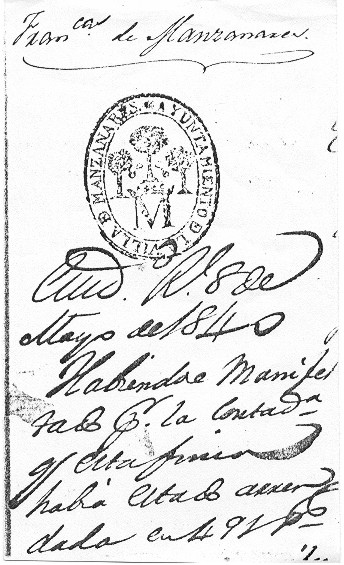 Fran.cas de Manzanares.
AYUNTAMIENTO D LA VILLA D MANZANARES.
M
Ciud. R.l 8 de
Mayo de 1840
Habiendose Manifes
tado p.r la Contad.a
q.e esta finca
habia estado arren
dada en 491 r.s